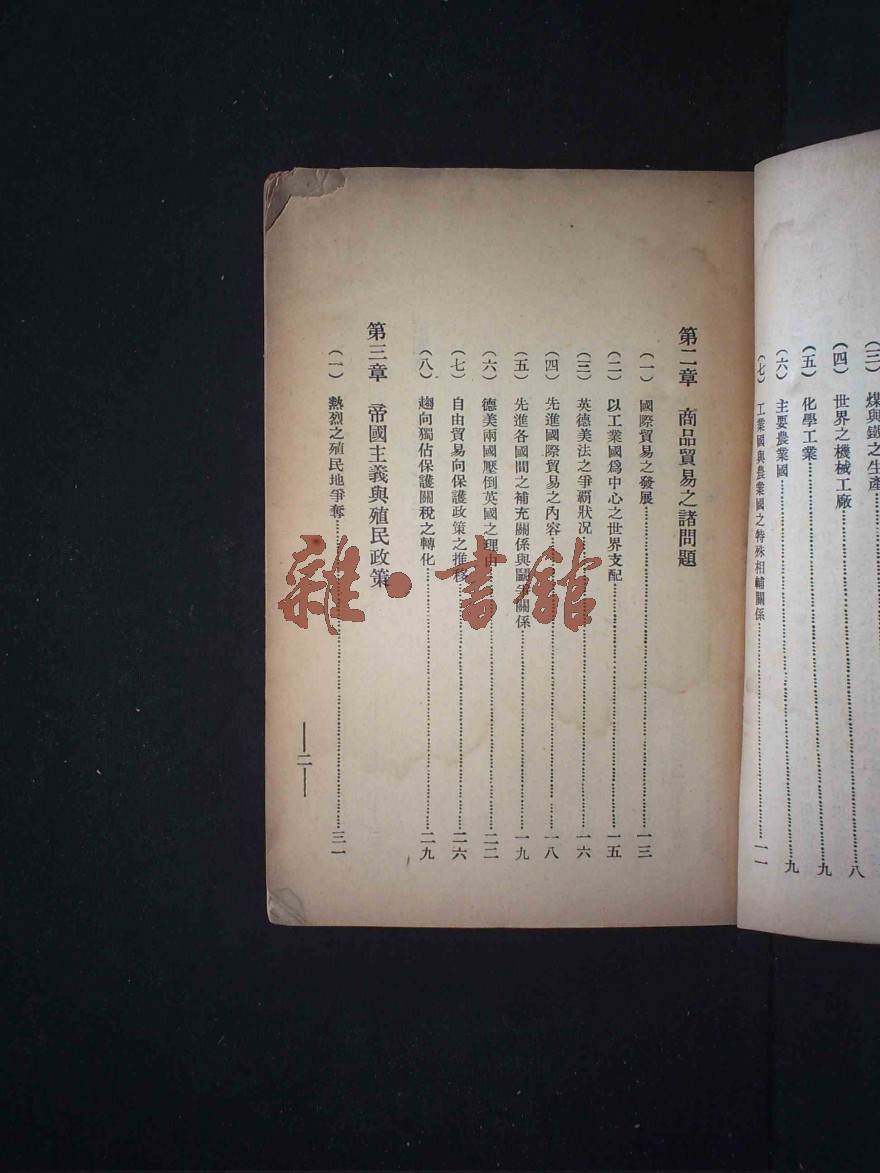 (三) 煤與鐵之生產
(四) 世界之機械工廠……八
(五) 化學工業……九
(六) 主要農業國……九
(七) 工業國與農業國之特殊相輔關係……一一
第二章 商品貿易之諸問題
(一) 國際貿易之發展……一三
(二) 以工業國爲中心之世界支配……一五
(三) 英德美法之爭霸狀況……一六
(四) 先進國際貿易之內容……一八
(五) 先進各國間之補充關係與鬭爭關係……一九
(六) 德美兩國壓倒英國之理由……二二
(七) 自由貿易向保護政策之推移……二六
(八) 趨向獨佔保護關稅之轉化……二九
第三章 帝國主義與殖民政策
(一) 熱烈之殖民地爭奪……三一
—二—
雜·書館